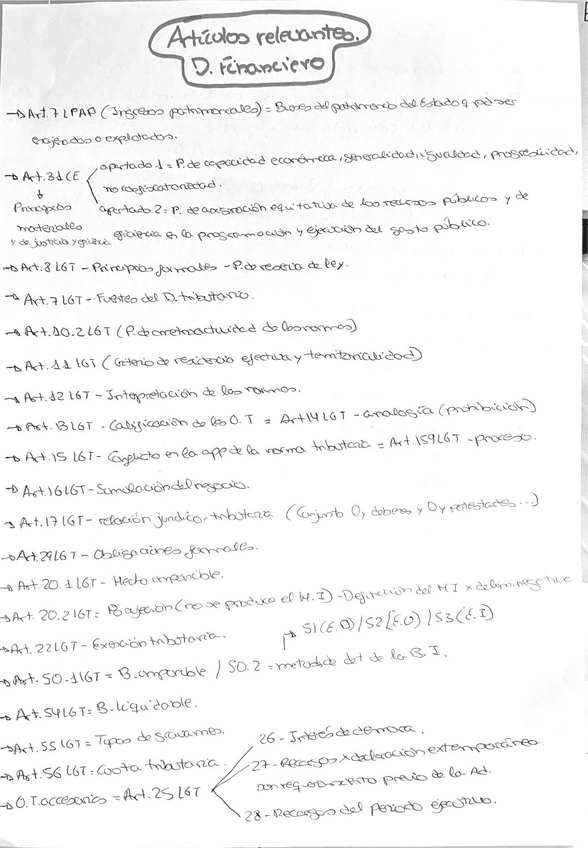 Artículos relevantes.
D. Financiero
→ Art. 7 LPAP (Ingresos patrimoniales) = Bienes del patrimonio del Estado q pd ser
enajenados o explotados.
→ Art. 31 CE
apartado 1 = P. de capacidad económica, generalidad, igualdad, progresividad,
no confiscatoriedad.
↓
Principios
materiales
y de justicia
apartado 2 = P. de asignación equitativa de los recursos públicos y de
eficiencia en la programación y ejecución del gasto público.
→ Art. 8 LGT - Principios formales - P. de reserva de ley.
→ Art. 7 LGT - Fuentes del D. tributario.
→ Art. 10.2 LGT (P. de irretroactividad de las normas)
→ Art. 11 LGT (Criterio de residencia efectiva y territorialidad)
→ Art. 12 LGT - Interpretación de las normas.
→ Art. 13 LGT - Calificación de las O.T = Art 14 LGT - analogía (prohibición)
→ Art. 15 LGT - Conflicto en la app de la norma tributaria = Art. 159 LGT - proceso.
→ Art. 16 LGT - Simulación del negocio.
→ Art. 17 LGT - relación jurídico-tributaria (Conjunto O, deberes y D y potestades...)
→ Art. 29 LGT - Obligaciones formales.
→ Art. 20.1 LGT - Hecho imponible.
→ Art. 20.2 LGT = No sujeción (no se produce el H.I) - Definición del HI x delim. negativa
→ Art. 22 LGT - Exención tributaria.
→ 51 (E.D) / 52 [E.O) / 53 (E.I)
→ Art. 50.1 LGT = B. imponible / 50.2 = metodos de det de la B.I.
→ Art. 54 LGT = B. liquidable.
→ Art. 55 LGT = Tipos de gravamen.
→ Art. 56 LGT = Cuota tributaria.
→ O.T. accesorias = Art. 25 LGT
26 - Interés de demora.
27 - Recargos x declaración extemporánea
sin requerimiento previo de la Ad.
28 - Recargos del periodo ejecutivo.